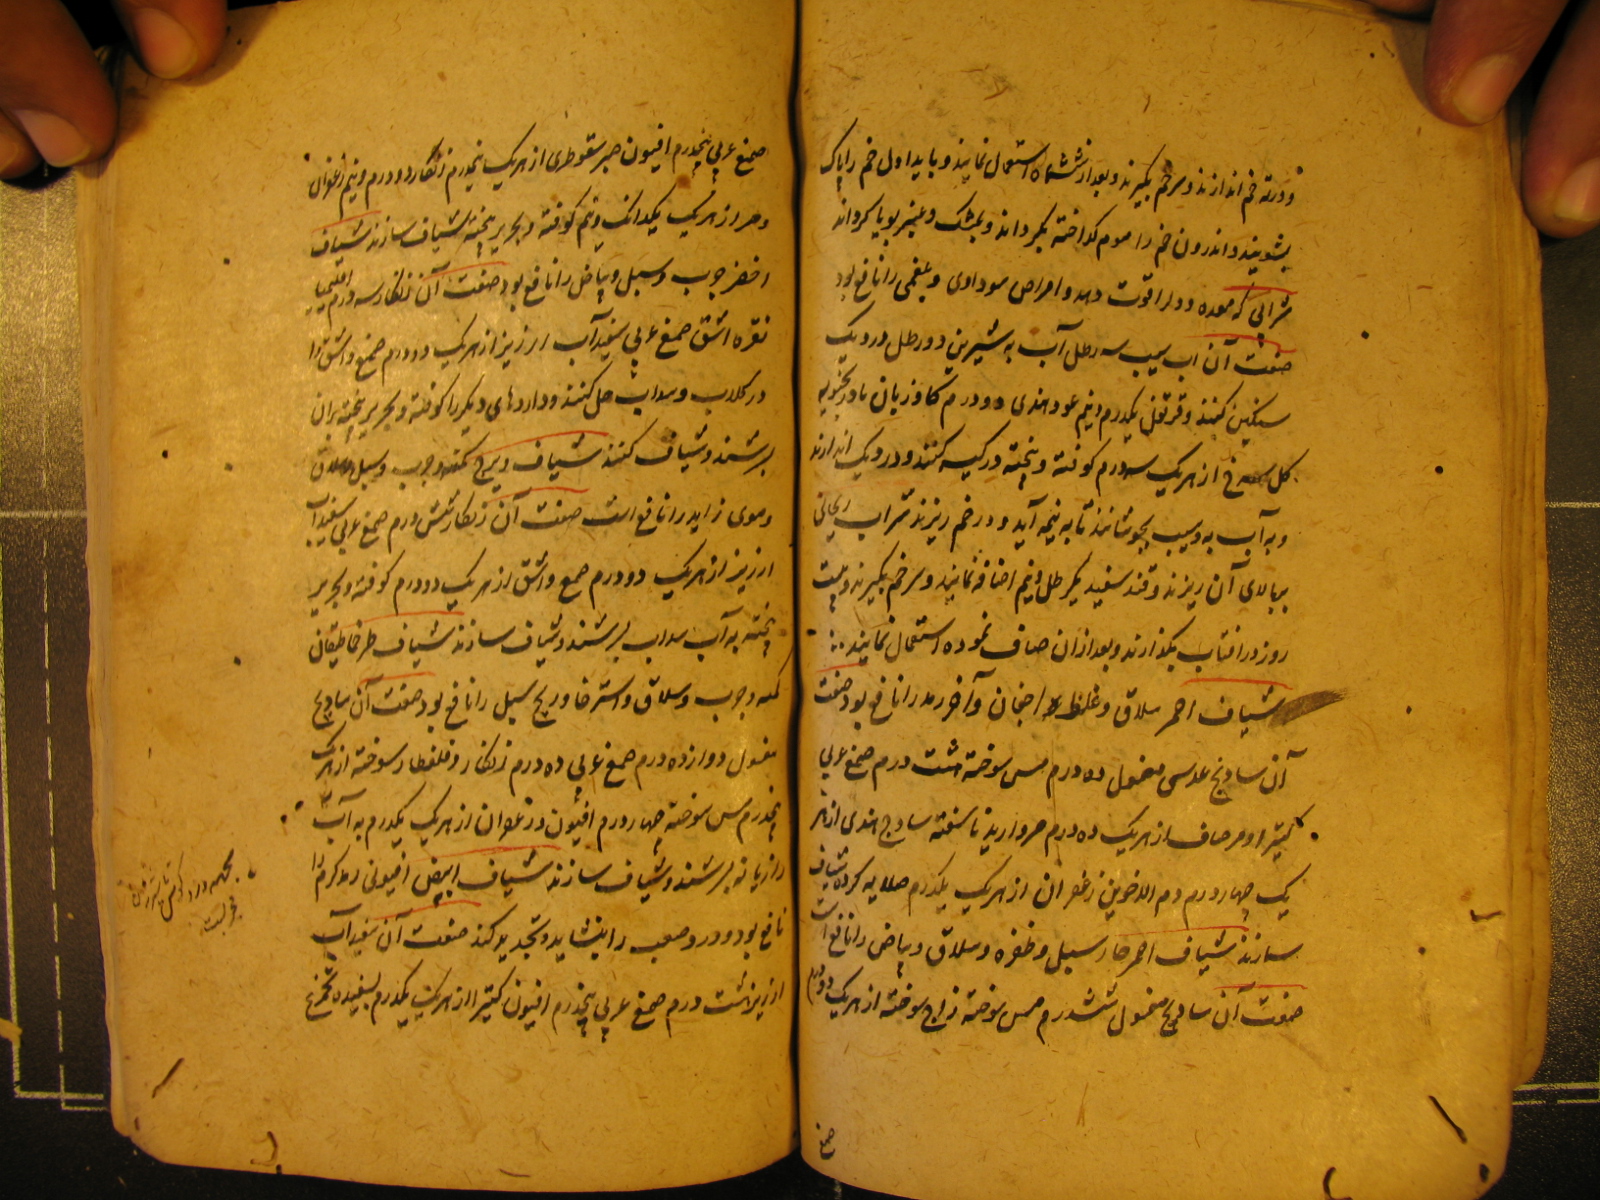 و در ته خم اندازند و سر خم بگیرند و بعد از ششماه استعمال نمایند و باید اول خم را پاک
بشویند و اندرون خم را موم کداخته بگردانند و بمشک و عنبر بویا کردانند
شرابی که معده و دل را قوت دهد و امراض سوداوی و بلغمی را نافع بود
صفت آن آب سیب سه رطل آب به شیرین دو رطل در دیک
سنکین کنند و قرنفل یکدرم و نیم عود هندی دو درم کاوزبان بادرنجبویه
کل سرخ از هر یک سه درم کوفته و پخته در کیسه کنند و در دیک اندازند
و به آب به و سیب بجوشانند تا به نیمه آید و در خم ریزند شراب ریحانی
بر بالای آن ریزند و قند سفید یکرطل و نیم اضافه نمایند و سر خم بگیرند و بیست
روز در افتاب بگذارند و بعد از ان صاف نموده استعمال نمایند
شیاف احمر سلاق و غلظ اجفان و آخر رمد را نافع بود صفت
آن سادنج عدسی مغسول ده درم مس سوخته هشت درم صمغ عربی
کتیرا و مر صاف از هر یک ده درم مروارید ناسفته سادج هندی از هر
یک چهار درم دم الاخوین زعفران از هر یک یکدرم صلایه کرده شیاف
سازند شیاف احمر حار سبل و ظفره و سلاق و بیاض را نافع است
صفت آن سادنج مغسول ششدرم مس سوخته زاج سوخته از هر یک دو درم
صمغ
صمغ عربی پنجدرم افیون صبر سقوطری از هر یک نیمدرم زنگار دو درم و نیم زعفران
و مر از هر یک یکدانک و نیم کوفته و بحریر پخته شیاف سازند شیاف
اخضر جرب و سبل و بیاض را نافع بود صفت آن زنگار سه درم اقلیمیا
نقره اشق صمغ عربی سفید آب ارزیز از هر یک دو درم صمغ و اشق را
در کلاب و سداب حل کنند و داروهای دیکر را کوفته و بحریر پخته بران
بر شند و شیاف کنند شیاف دیزج کمنه و جرب و سبل و سلاق
و موی زاید را نافع است صفت آن زنگار شش درم صمغ عربی سفیداب
ارزیز از هر یک دو درم صمغ و اشق از هر یک دو درم کوفته و بحریر
پخته به آب سداب بر شند و شیاف سازند شیاف طرخماطیقان
کمنه و جرب و سلاق و استرخا و ریح سبل را نافع بود صفت آن سادنج
مغسول دوازده درم صمغ عربی ده درم زنگار و قلقطار سوخته از هر یک
پنجدرم مس سوخته چهار درم افیون و زعفران از هر یک یکدرم به آب
رازیانه بر شند و شیاف سازند شیاف ابیض افیونی رمد کرم را
نافع بود و درد صعب را بنشاید و تجدید کند صفت آن سفیدآب
ارزیز هشت درم صمغ عربی پنجدرم افیون کتیرا از هر یک یکدرم بسفیده تخم مرغ